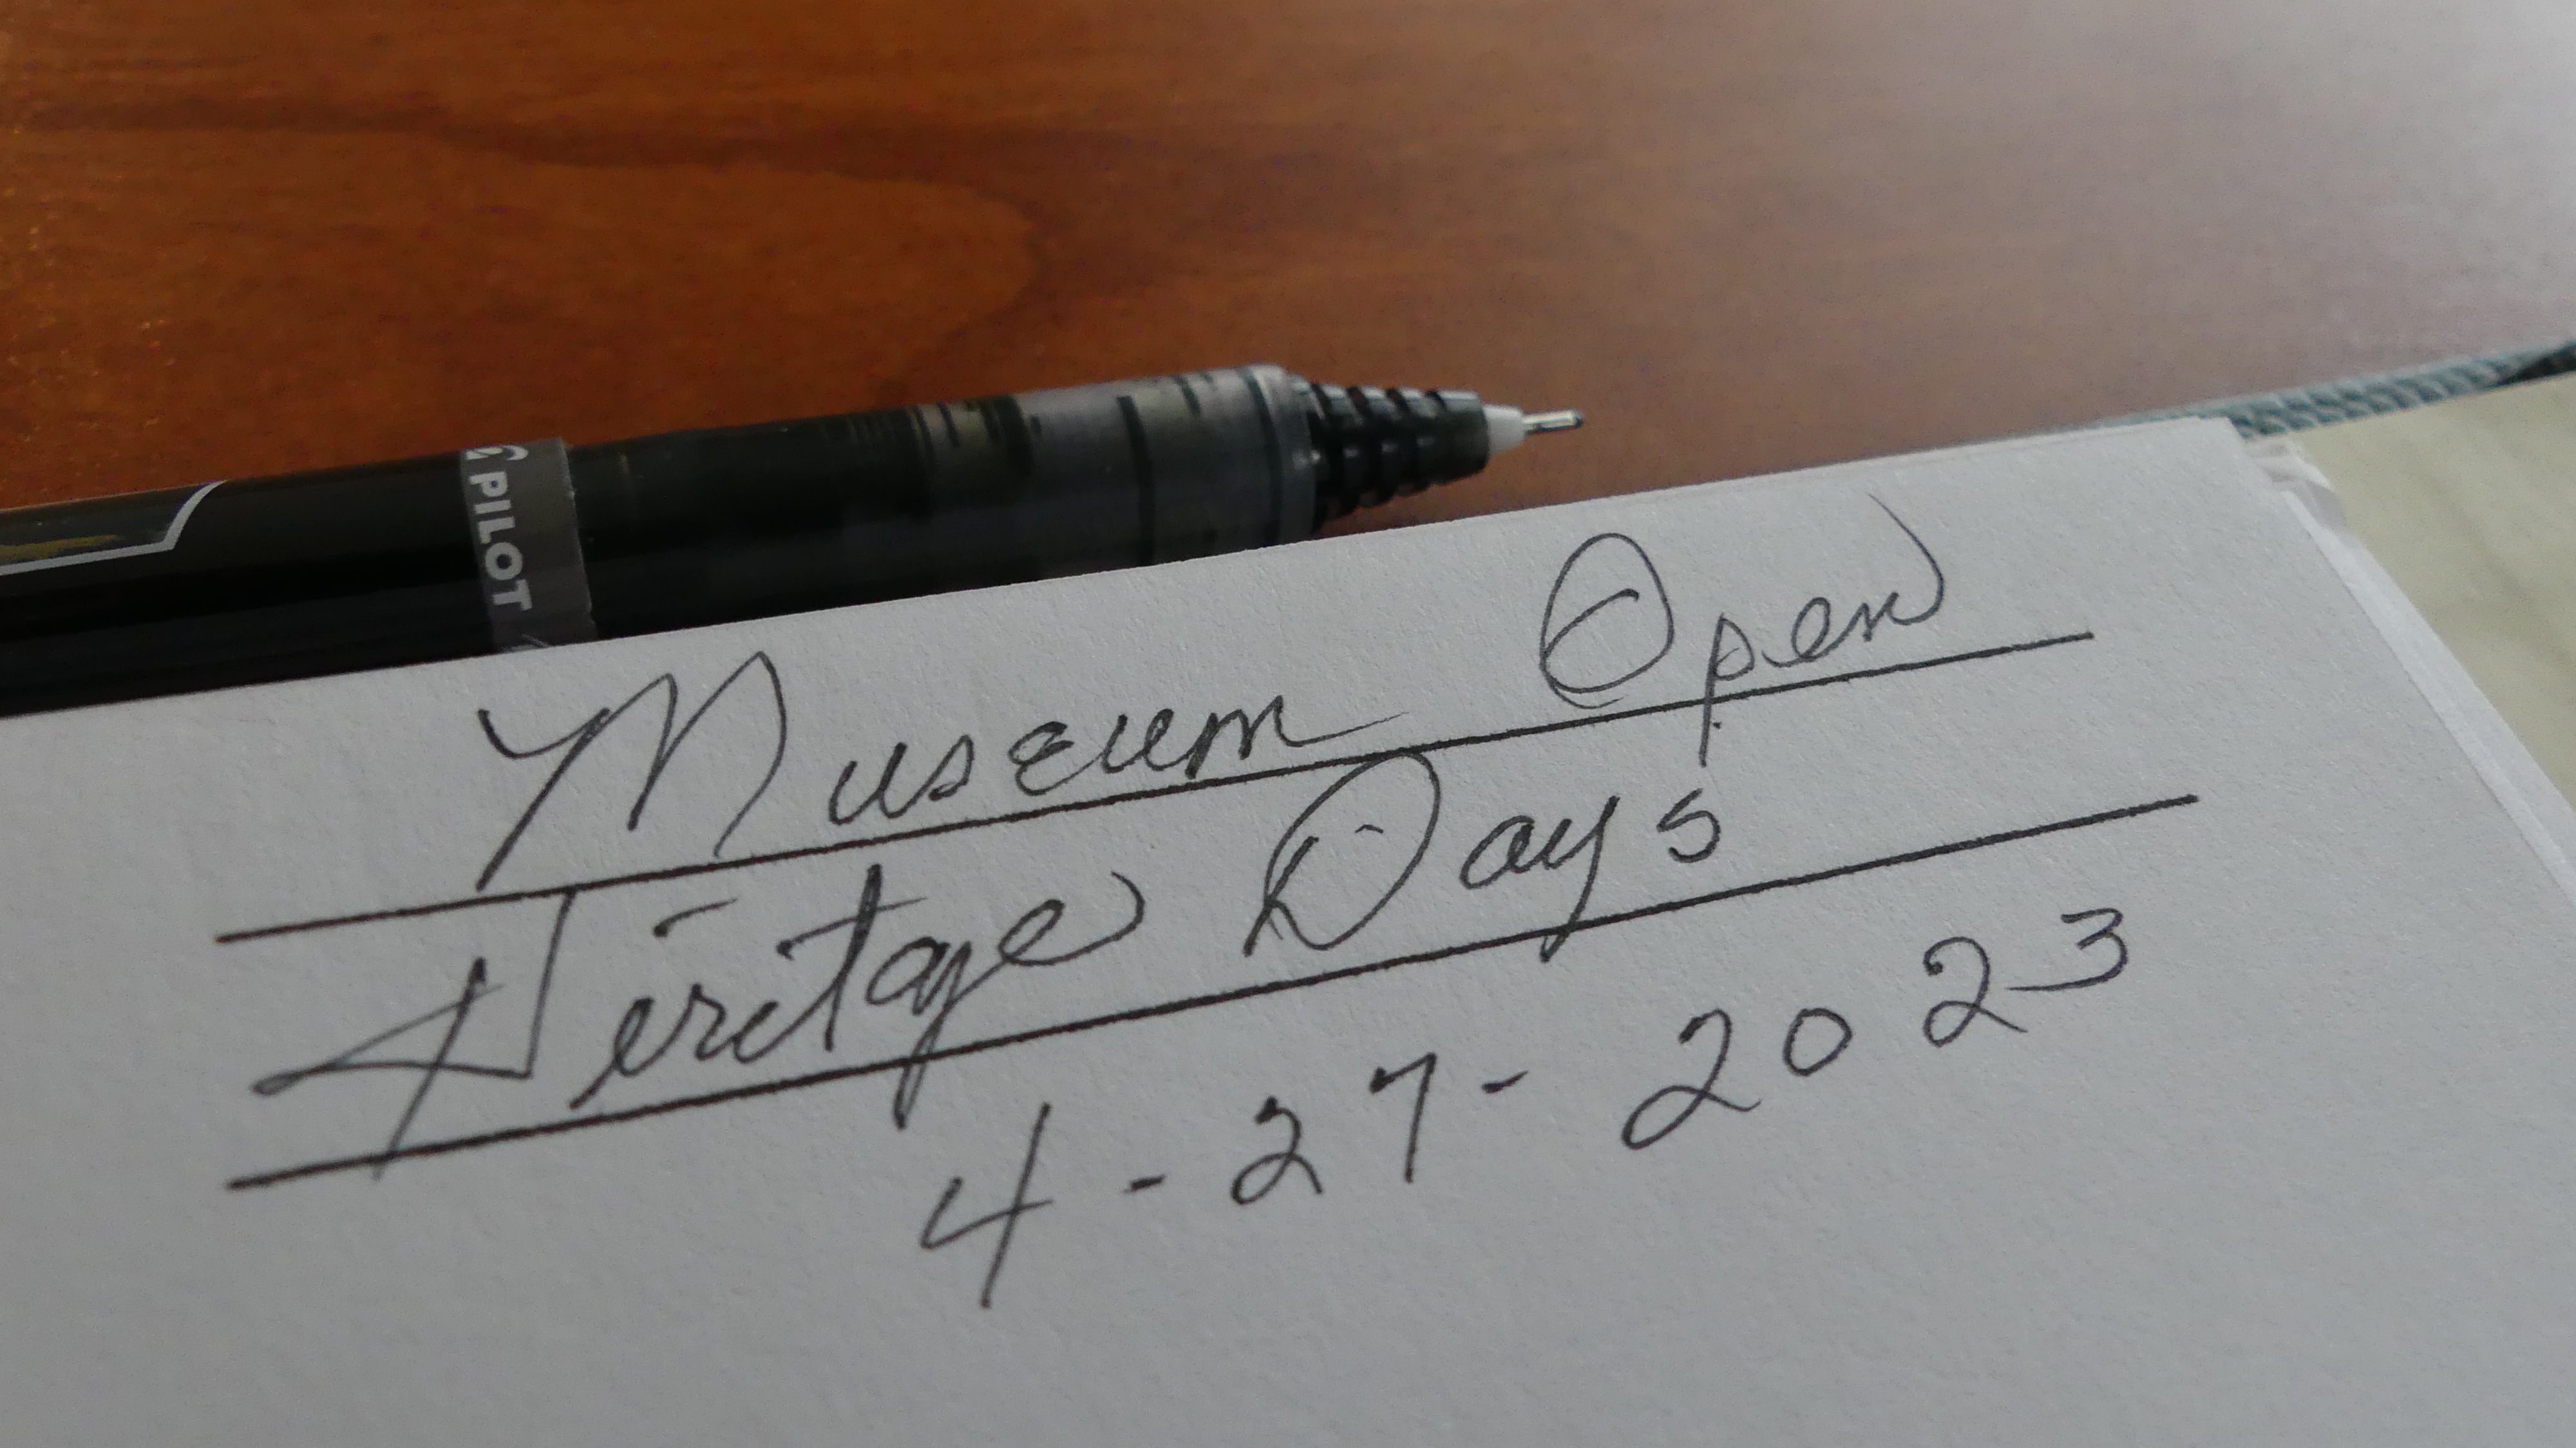 PILOT
Museum Open
Heritage Days
4-27-2023